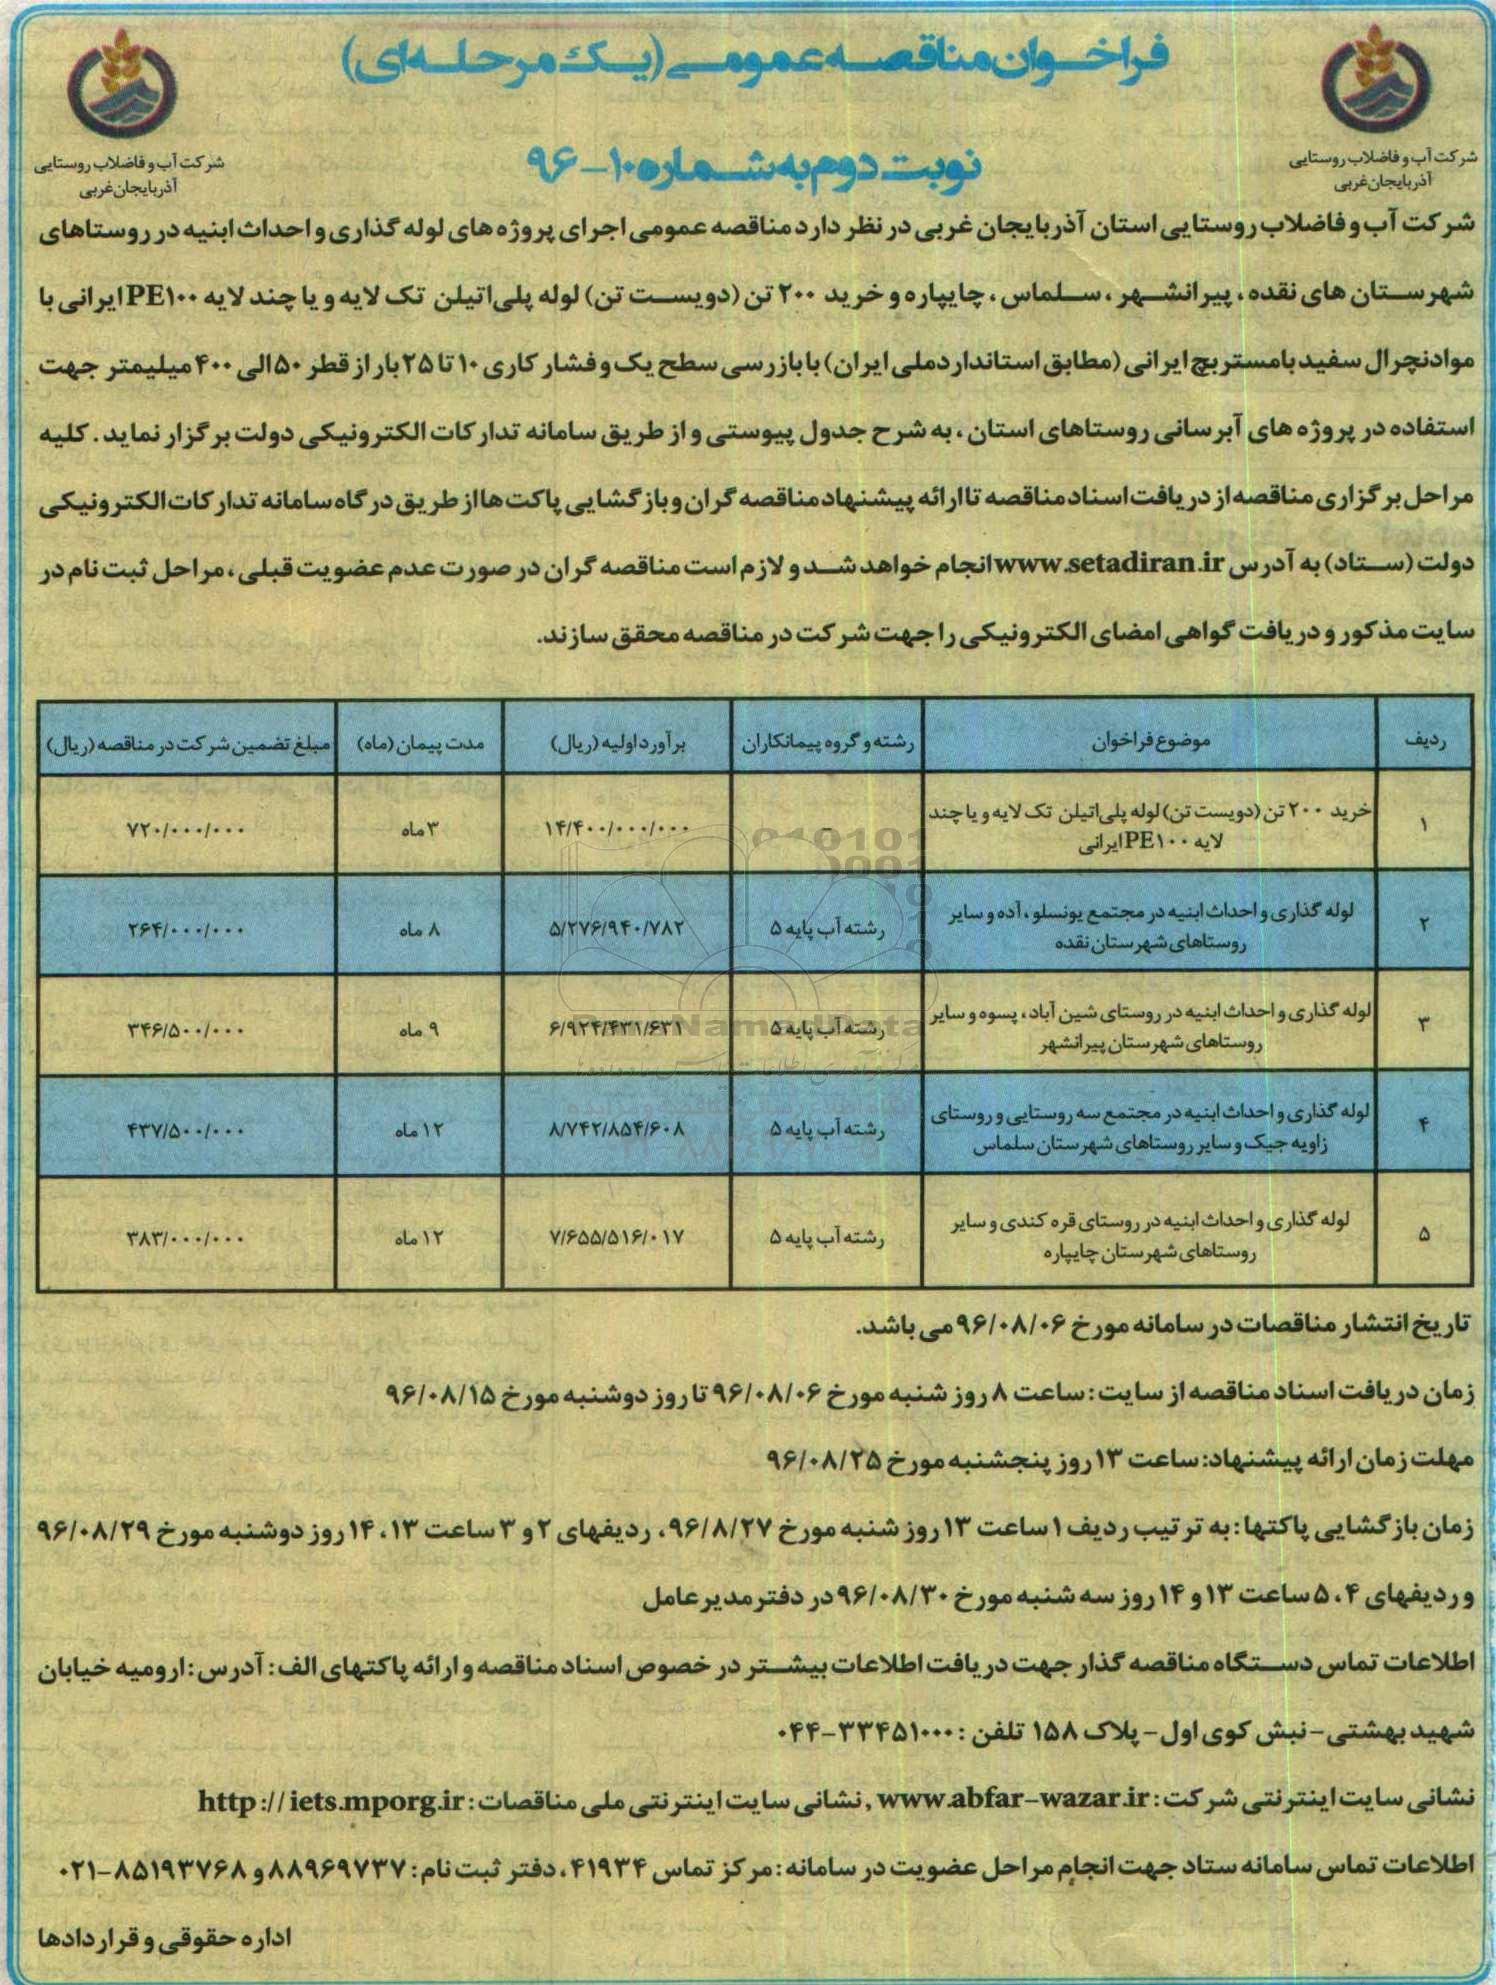 فراخوان مناقصه عمومی (یک مرحله‌ای)
نوبت دوم به شماره ۱۰-۹۶
شرکت آب و فاضلاب روستایی
آذربایجان غربی
شرکت آب و فاضلاب روستایی
آذربایجان غربی
شرکت آب و فاضلاب روستایی استان آذربایجان غربی در نظر دارد مناقصه عمومی اجرای پروژه های لوله گذاری و احداث ابنیه در روستاهای
شهرستان های نقده ، پیرانشهر ، سلماس ، چایپاره و خرید ۲۰۰ تن (دویست تن) لوله پلی‌اتیلن تک لایه و یا چند لایه PE۱۰۰ ایرانی با
مواد نچرال سفید با مستربچ ایرانی (مطابق استاندارد ملی ایران) با بازرسی سطح یک و فشار کاری ۱۰ تا ۲۵ بار از قطر ۵۰ الی ۴۰۰ میلیمتر جهت
استفاده در پروژه های آبرسانی روستاهای استان ، به شرح جدول پیوستی و از طریق سامانه تدارکات الکترونیکی دولت برگزار نماید . کلیه
مراحل برگزاری مناقصه از دریافت اسناد مناقصه تا ارائه پیشنهاد مناقصه گران و بازگشایی پاکت ها از طریق درگاه سامانه تدارکات الکترونیکی
دولت (ستاد) به آدرس www.setadiran.ir انجام خواهد شد و لازم است مناقصه گران در صورت عدم عضویت قبلی ، مراحل ثبت نام در
سایت مذکور و دریافت گواهی امضای الکترونیکی را جهت شرکت در مناقصه محقق سازند.
ردیف موضوع فراخوان رشته و گروه پیمانکاران برآورد اولیه (ریال) مدت پیمان (ماه) مبلغ تضمین شرکت در مناقصه (ریال)
۱ خرید ۲۰۰ تن (دویست تن) لوله پلی‌اتیلن تک لایه و یا چند لایه PE۱۰۰ ایرانی - ۱۴/۴۰۰/۰۰۰/۰۰۰ ۳ ماه ۷۲۰/۰۰۰/۰۰۰
۲ لوله گذاری و احداث ابنیه در مجتمع یونسلو ، آده و سایر روستاهای شهرستان نقده رشته آب پایه ۵ ۵/۲۷۶/۹۴۰/۷۸۲ ۸ ماه ۲۶۴/۰۰۰/۰۰۰
۳ لوله گذاری و احداث ابنیه در روستای شین آباد ، پسوه و سایر روستاهای شهرستان پیرانشهر رشته آب پایه ۵ ۶/۹۲۴/۴۳۱/۶۳۱ ۹ ماه ۳۴۶/۵۰۰/۰۰۰
۴ لوله گذاری و احداث ابنیه در مجتمع سه روستایی و روستای زاویه جیک و سایر روستاهای شهرستان سلماس رشته آب پایه ۵ ۸/۷۴۲/۸۵۴/۶۰۸ ۱۲ ماه ۴۳۷/۵۰۰/۰۰۰
۵ لوله گذاری و احداث ابنیه در روستای قره کندی و سایر روستاهای شهرستان چایپاره رشته آب پایه ۵ ۷/۶۵۵/۵۱۶/۰۱۷ ۱۲ ماه ۳۸۳/۰۰۰/۰۰۰
تاریخ انتشار مناقصات در سامانه مورخ ۹۶/۰۸/۰۶ می باشد.
زمان دریافت اسناد مناقصه از سایت : ساعت ۸ روز شنبه مورخ ۹۶/۰۸/۰۶ تا روز دوشنبه مورخ ۹۶/۰۸/۱۵
مهلت زمان ارائه پیشنهاد: ساعت ۱۳ روز پنجشنبه مورخ ۹۶/۰۸/۲۵
زمان بازگشایی پاکتها : به ترتیب ردیف ۱ ساعت ۱۳ روز شنبه مورخ ۹۶/۸/۲۷ ، ردیفهای ۲ و ۳ ساعت ۱۳ ، ۱۴ روز دوشنبه مورخ ۹۶/۰۸/۲۹
و ردیفهای ۴ ، ۵ ساعت ۱۳ و ۱۴ روز سه شنبه مورخ ۹۶/۰۸/۳۰ در دفتر مدیر عامل
اطلاعات تماس دستگاه مناقصه گذار جهت دریافت اطلاعات بیشتر در خصوص اسناد مناقصه و ارائه پاکتهای الف : آدرس : ارومیه خیابان
شهید بهشتی - نبش کوی اول - پلاک ۱۵۸ تلفن : ۳۳۴۵۱۰۰۰-۰۴۴
نشانی سایت اینترنتی شرکت : www.abfar-wazar.ir , نشانی سایت اینترنتی ملی مناقصات : http://iets.mporg.ir
اطلاعات تماس سامانه ستاد جهت انجام مراحل عضویت در سامانه : مرکز تماس ۴۱۹۳۴ ، دفتر ثبت نام : ۸۸۹۶۹۷۳۷ و ۸۵۱۹۳۷۶۸-۰۲۱
اداره حقوقی و قراردادها